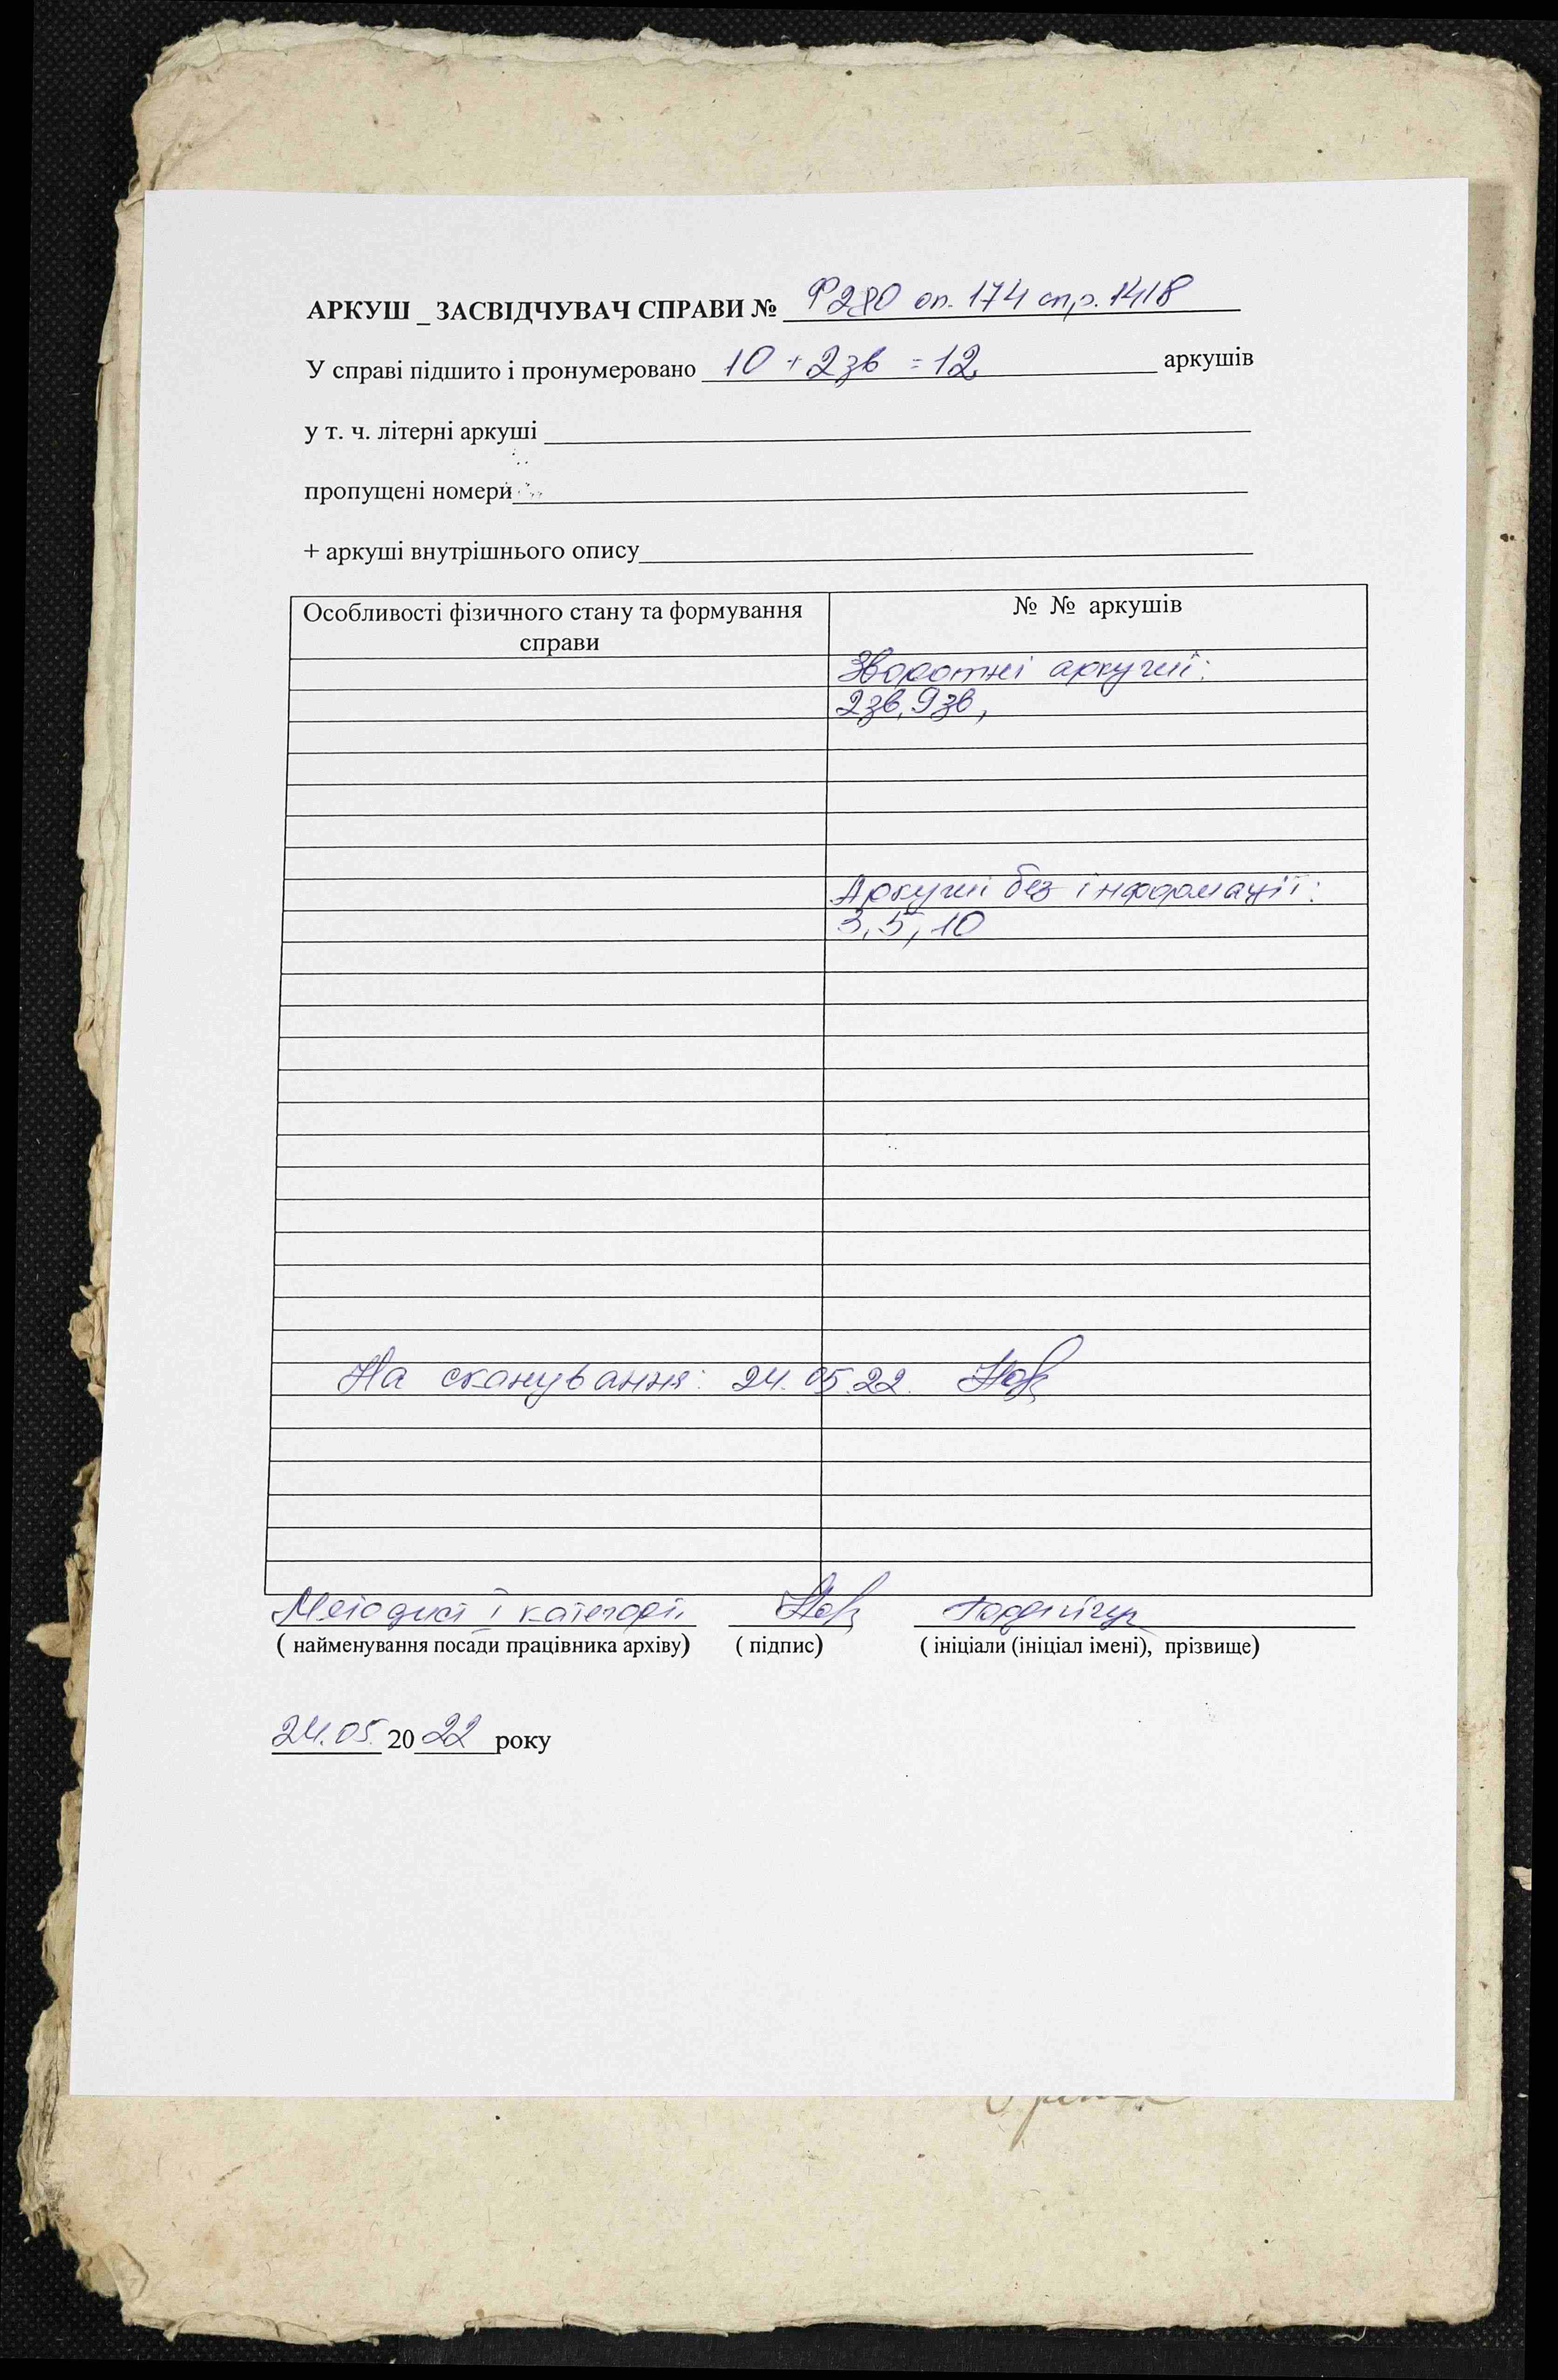 АРКУШ _ ЗАСВІДЧУВАЧ СПРАВИ № Ф280 оп. 174 спр. 1418
У справі підшито і пронумеровано 10 + 2зв = 12 аркушів
у т. ч. літерні аркуші
пропущені номери
+ аркуші внутрішнього опису
Особливості фізичного стану та формування справи
№ № аркушів
Зворотні аркуші:
2зв, 9зв,
Аркуші без інформації:
3, 5, 10
На сканування: 24.05.22
Методист І категорії
( найменування посади працівника архіву) ( підпис) ( ініціали (ініціал імені), прізвище)
24.05. 2022 року